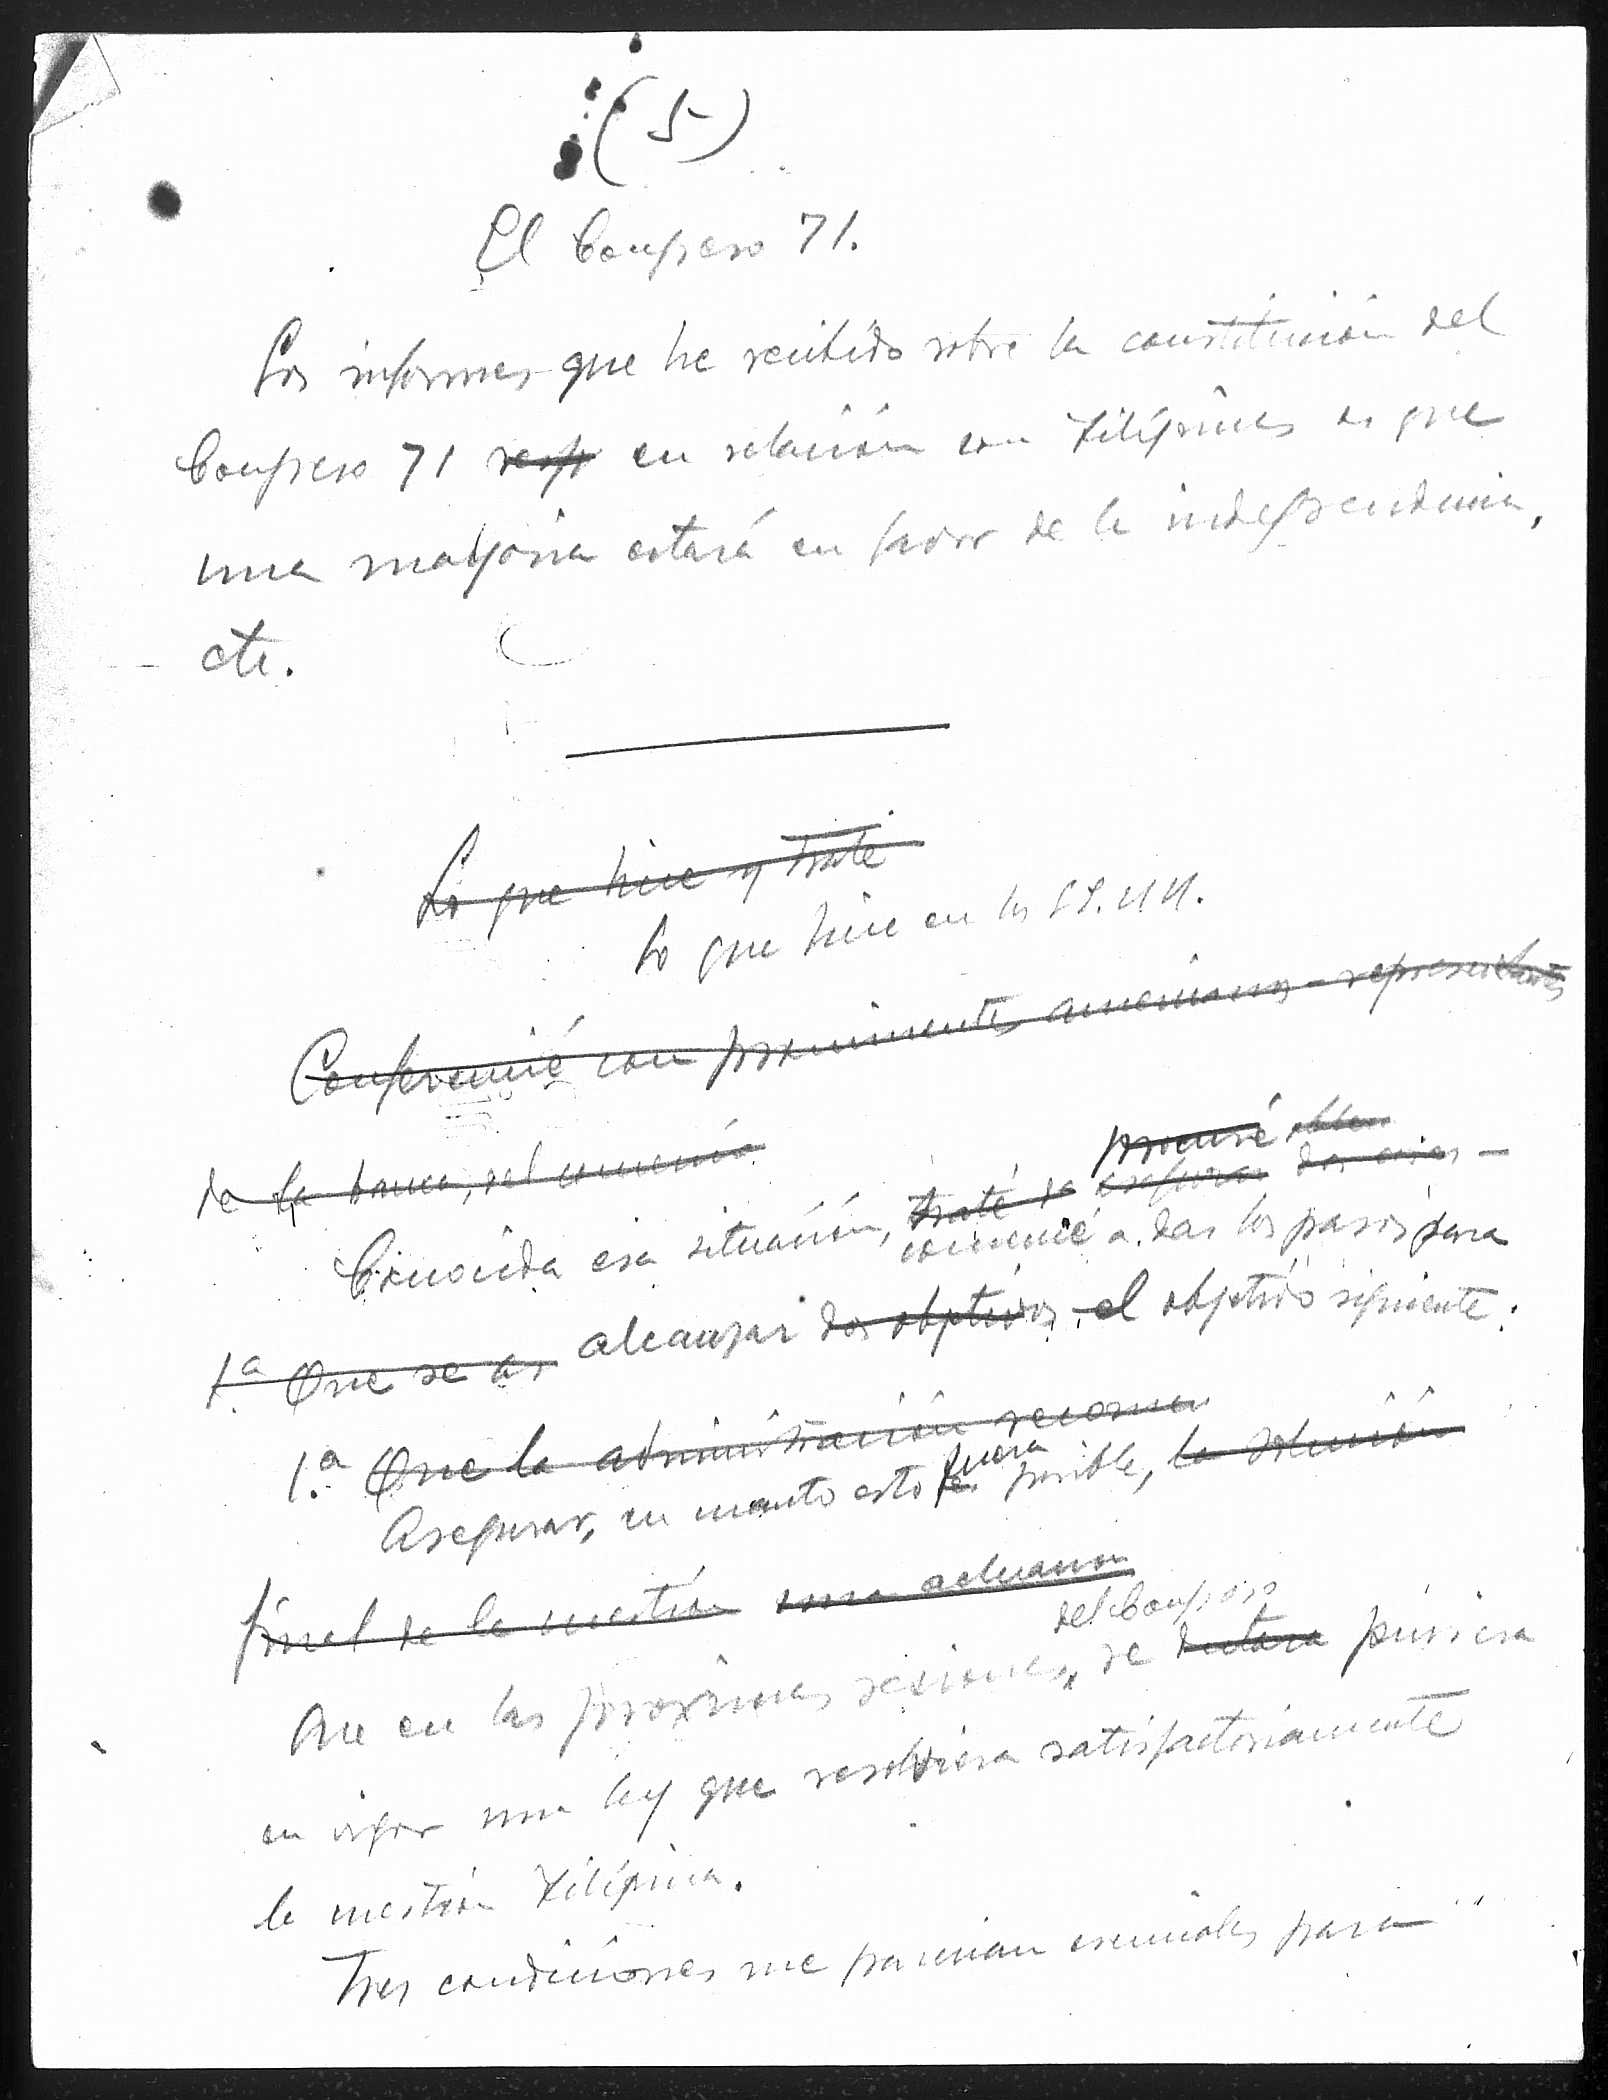 (5)
El Congreso 71.
Los informes que he recibido sobre la constitución del
Congreso 71 resp en relación con Filipinas es que
una mayoria estará en favor de la independencia,
etc.
Lo que hice y traté
Lo que hice en los EE.UU.
Conferencié con prominentes americanos - representantes
de la banca, del comercio
procuré obten
Conocida esa situación, traté de asegurar dos cosas -
comencé a dar los pasos para
1.ª Que se as alcanzar dos objetivos el objetivo siguiente:
1.ª Que la administración recomen
Asegurar, en cuanto esto es fuera posible, la solución
final de la cuestión una actuacion
del Congreso
Que en las proximas sesiones, se dictara pusiera
en vigor una ley que resolviera satisfactoriamente
la cuestión Filipina.
Tres condiciones me parecian esenciales para